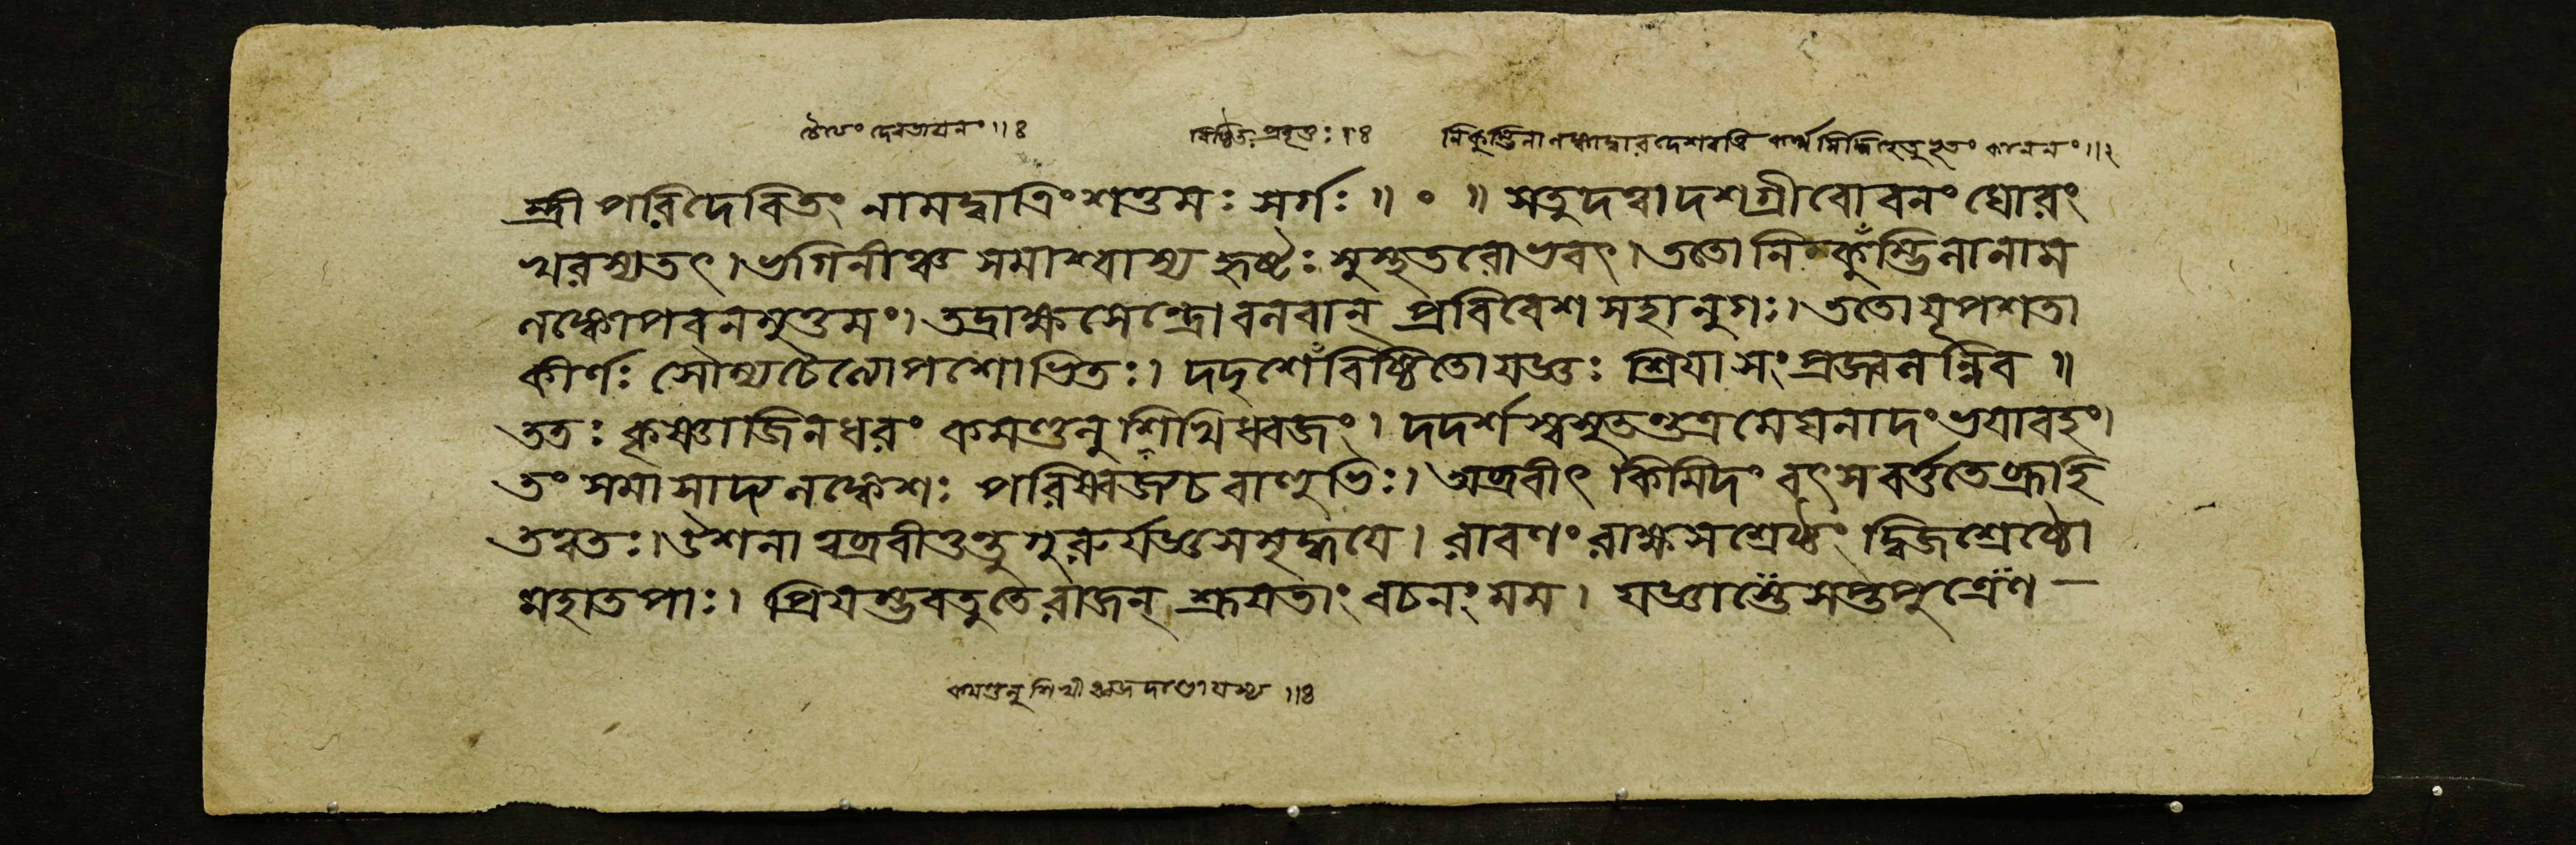 চৈত্যং দেবতায়তনং ॥৪
বিষ্ঠিতঃ প্রবৃত্তঃ ॥৪
নিকুম্ভিলা লঙ্কাদ্বারদেশবর্ত্তি কর্ম্মসিদ্ধিহেতুভূতং কাননং ॥২
স্ত্রীপরিদেবিতং নামদ্বাত্রিংশত্তমঃ সর্গঃ ॥ ০ ॥ সতুদত্বাদশগ্রীবোবনং ঘোরং
খরস্যতৎ। ভগিনীঞ্চ সমাশ্বাস্য হৃষ্টঃ সুস্থতরোভবৎ। ততোনিস্কুঁম্ভিলানাম
লঙ্কোপবনমুত্তমং। তদ্রাক্ষসেন্দ্রোবলবান্ প্রবিবেশসহানুগঃ। ততোযূপশতা
কীর্ণঃ সৌম্যচৈত্যোপশোভিতঃ। দদৃশেঁবিষ্ঠিতোযজ্ঞঃ শ্রিযাসংপ্রজ্বলন্নিব ॥
ততঃ কৃষ্ণাজিনধরং কমণ্ডলুশিখিধ্বজং। দদর্শস্বসুতন্তত্রমেঘনাদংভযাবহং।
তং সমাসাদ্যলঙ্কেশঃ পরিষ্বজ্যচবাহুভিঃ। অব্রবীৎ কিমিদং বৎসবর্ত্ততেব্রূহি
তত্বতঃ। ঔশনাত্বব্রবীত্তন্তুগুরুর্যজ্ঞসমৃদ্ধযে। রাবণং রাক্ষসশ্রেষ্ঠং দ্বিজশ্রেষ্ঠো
মহাতপাঃ। প্রিযম্ভবতুতেরাজন্ শ্রূযতাং বচনংমম। যজ্ঞাস্তেঁসপ্তপুত্রেণ—
কমণ্ডলুশিখীধ্বজদণ্ডোযস্য ॥৪